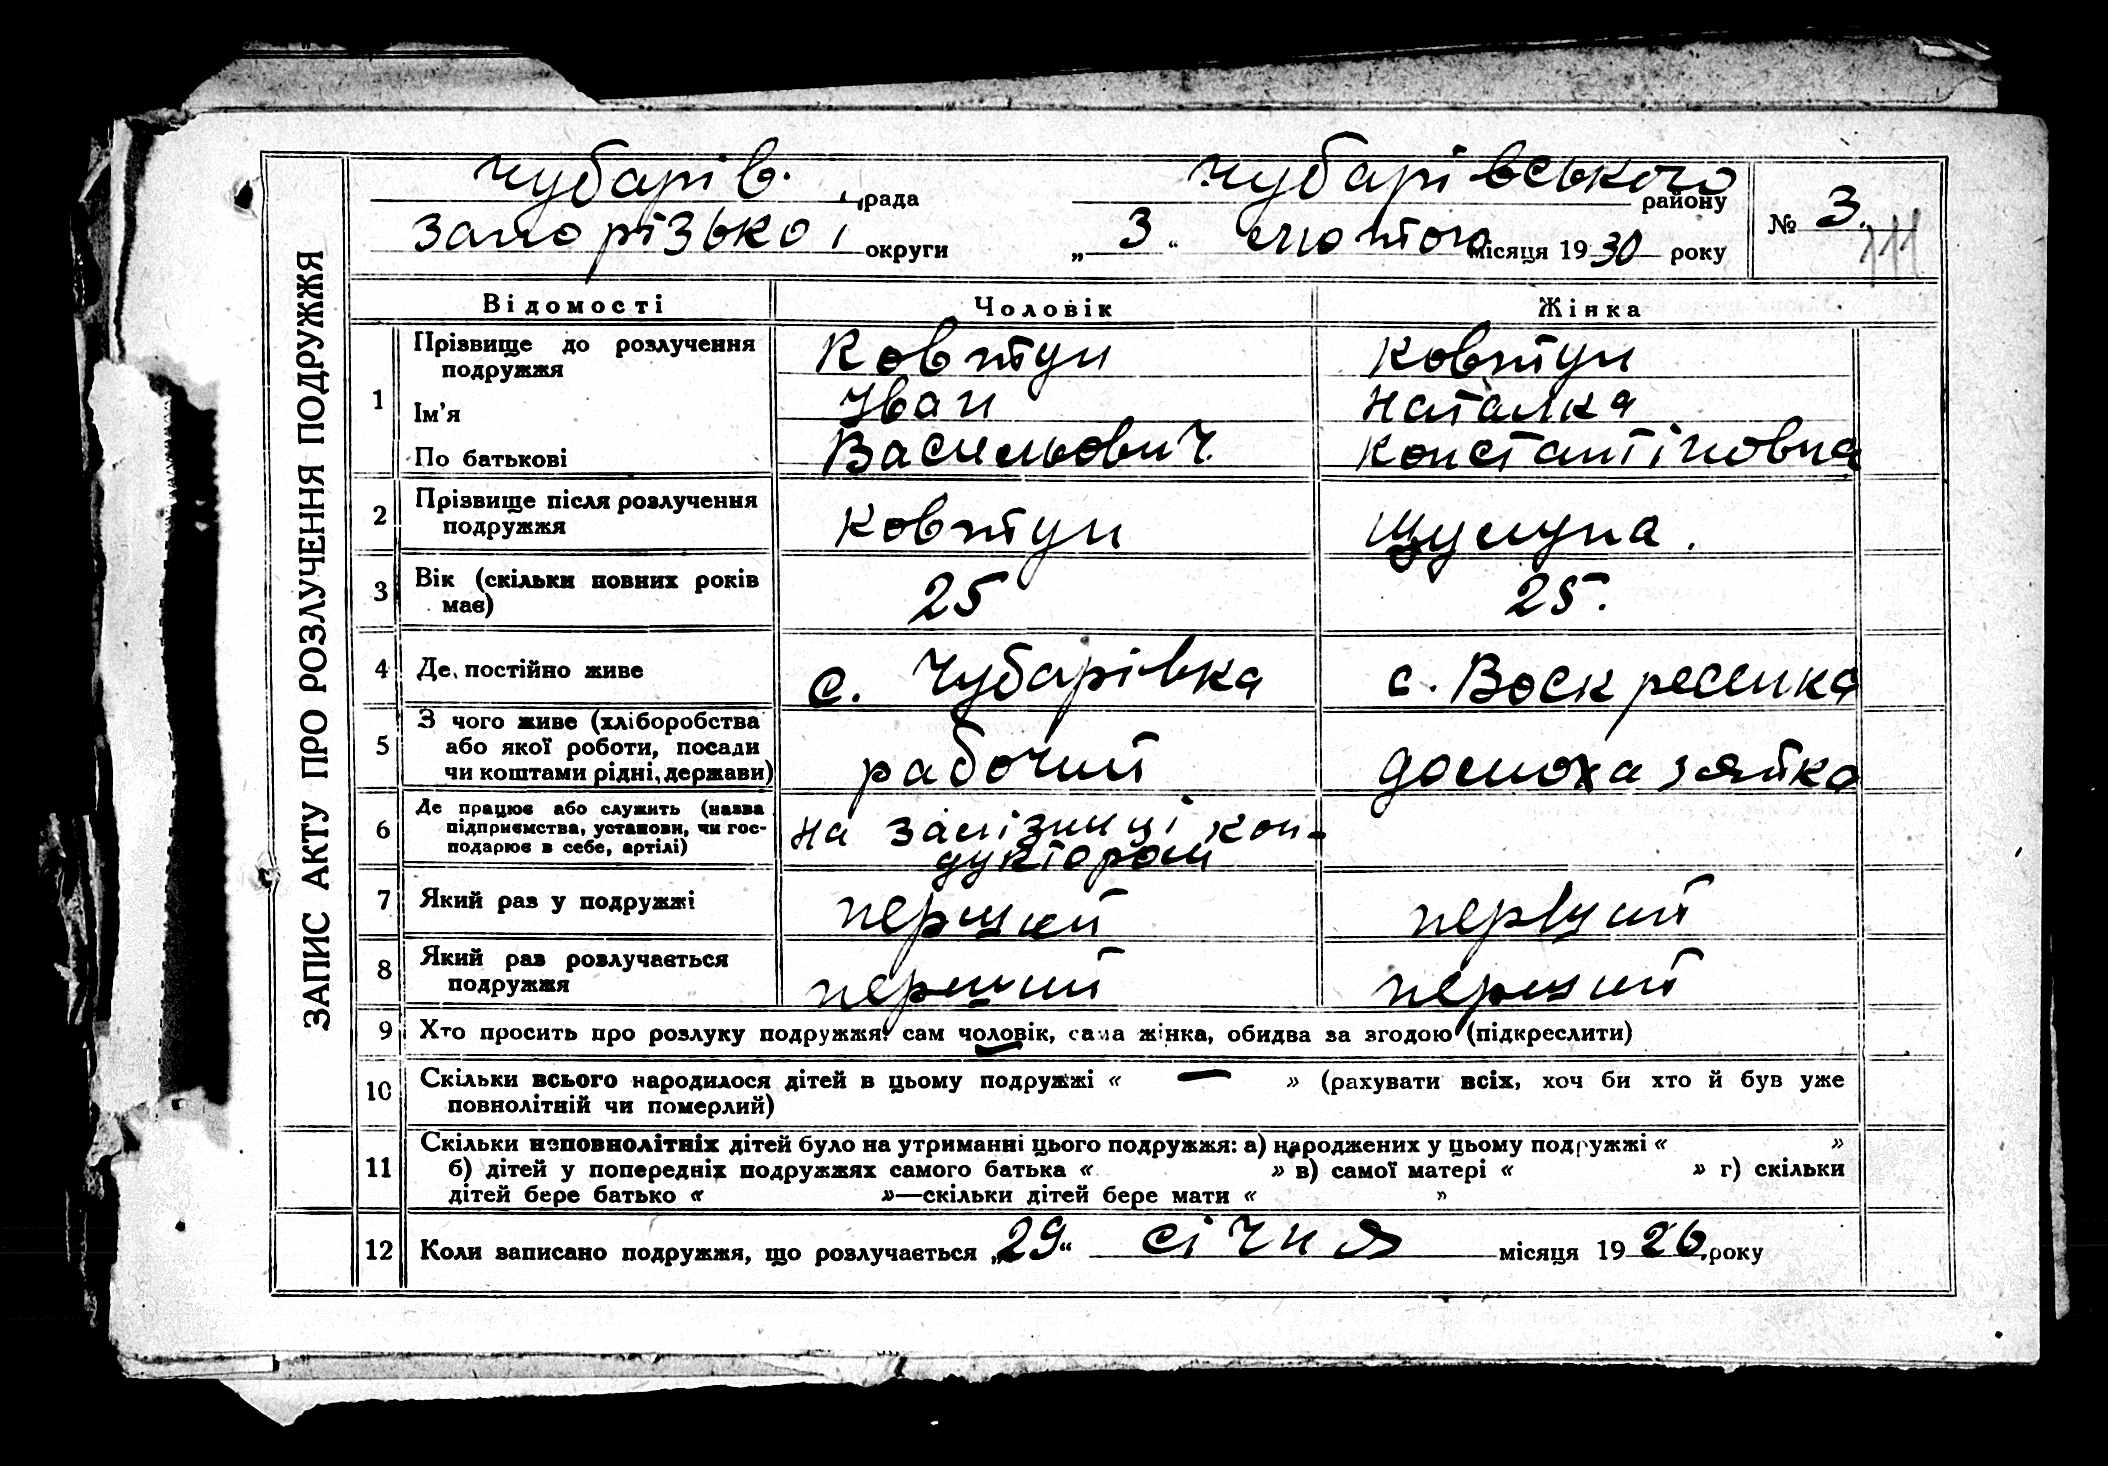 ЗАПИС АКТУ ПРО РОЗЛУЧЕННЯ ПОДРУЖЖЯ
Чубарів. рада Чубарівського району № 3.
Запорізької округи „ 3 “ лютого місяця 1930 року
Відомості Чоловік Жінка
1 Прізвище до розлучення подружжя Ковтун Ковтун
Ім'я Іван Наталка
По батькові Васильович. Константіновна
2 Прізвище після розлучення подружжя Ковтун
3 Вік (скільки повних років має) 25 25.
4 Де постійно живе с. Чубарівка с. Воскресенка
5 З чого живе (хліборобства або якої роботи, посади чи коштами рідні, держави) рабочий домохазяйка
6 Де працює або служить (назва підприємства, установи, чи господарює в себе, артілі) на залізниці кондуктором
7 Який раз у подружжі перший перший
8 Який раз розлучається подружжя перший перший
9 Хто просить про розлуку подружжя: сам чоловік, сама жінка, обидва за згодою (підкреслити)
10 Скільки всього народилося дітей в цьому подружжі « — » (рахувати всіх, хоч би хто й був уже
повнолітній чи померлий)
11 Скільки неповнолітніх дітей було на утриманні цього подружжя: а) народжених у цьому подружжі « »
б) дітей у попередніх подружжях самого батька « » в) самої матері « » г) скільки
дітей бере батько « »—скільки дітей бере мати « »
12 Коли записано подружжя, що розлучається „29“ січня місяця 1926. року